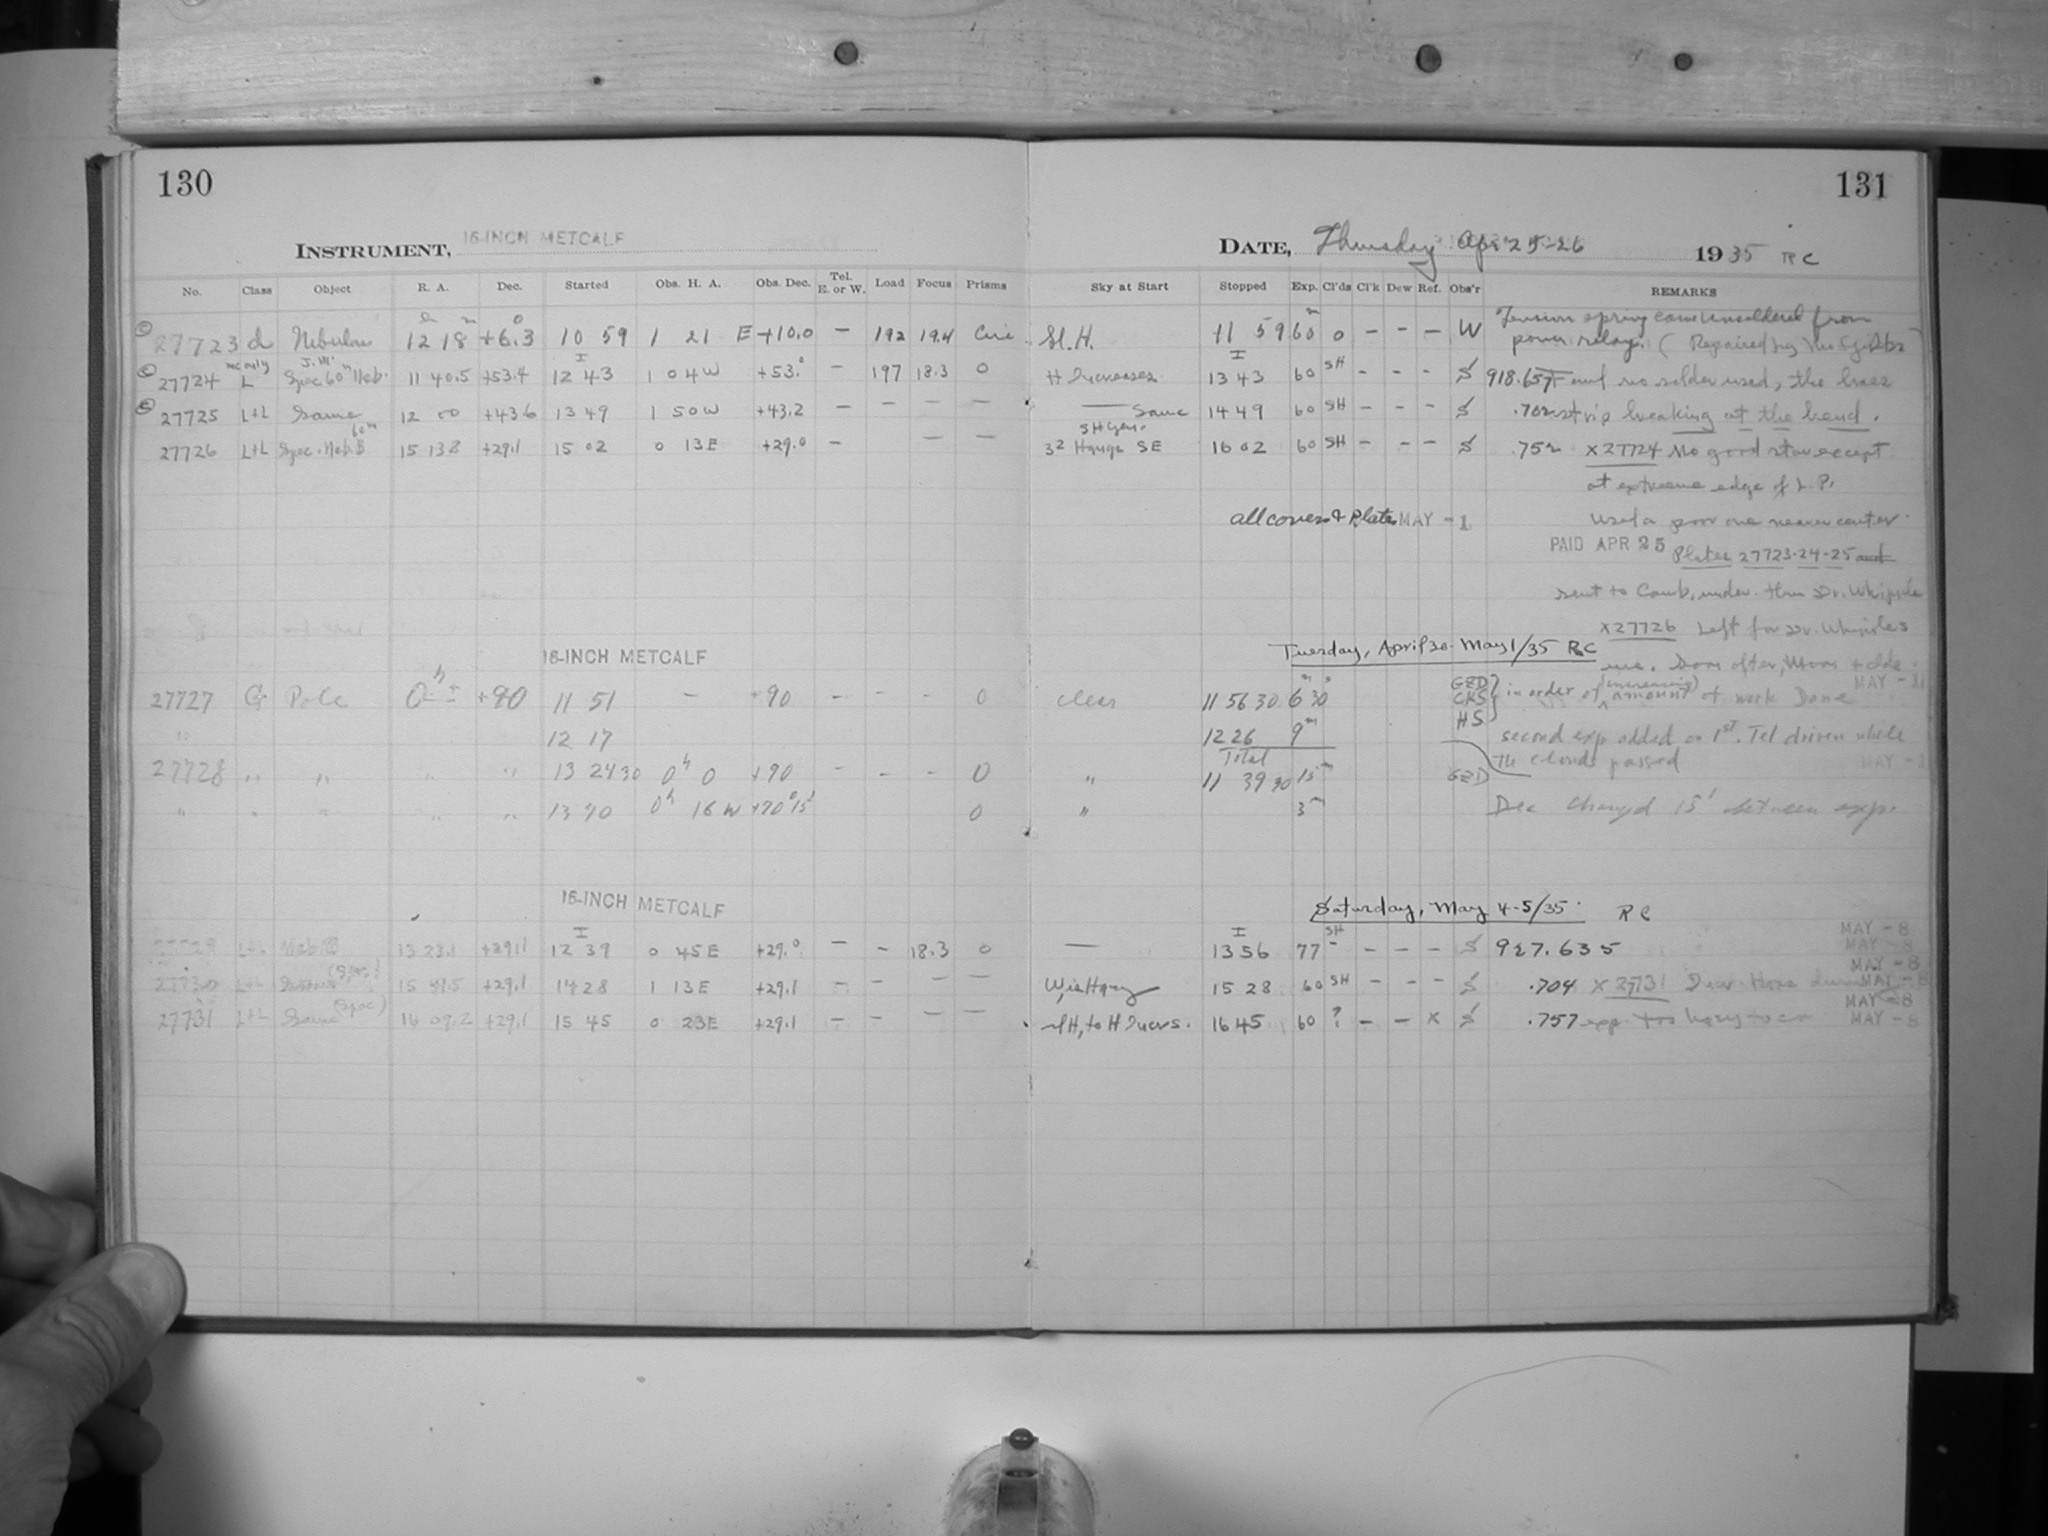 130
131
INSTRUMENT, 16-INCH METCALF
DATE, Thursday Apr 25-26 1935 RC
No. Class Object R. A. Dec. Started Obs. H. A. Obs. Dec. Tel. E. or W. Load Focus Prisms Sky at Start Stopped Exp. Cl'ds Cl'k Dew Ref. Obs'r REMARKS
27723 d Nebulae 12h 18m +6.3° 10 59 1 21 E +10.0 — 192 19.4 SL.H. 11 59 60m 0 - - — W Tension spring came unsoldered from
power relay. (Repaired by
27724 L Spec 60m Neb. 11 40.5 +53.4 12 43 1 04W +53.° — 197 18.3 0 H Increases 13 43 60 SH - - - S 918.657 and no solder used, the brass
27725 L+L Same 12 00 +43.6 13 49 1 50W +43.2 — — — — Same 14 49 60 SH - - - S .702 strip breaking at the bend.
27726 L+L Spec. Neb. B 60m 15 13.8 +29.1 15 02 0 13E +29.0 — — — SE 16 02 60 SH - - - S .752 X27724 No good star except
at extreme edge of L.P.
all covers & Plates MAY -1 Used a poor one nearer center.
PAID APR 25 Plates 27723-24-25 and
sent to Camb. under Dr. Whipple
X27726 Left for Dr. Whipples
16-INCH METCALF Tuesday, April 30 - May 1/35 RC
27727 G Pole 0h +90 11 51 — +90 - - - 0 clear 11 56 30 6m 30s GED CKS HS in order of (increasing) amount of work Done MAY -11
12 17 12 26 9m second exp added on 1st. Tel driven while
Total
27728 " " " " 13 24 30 0h 0 +90 - - - 0 " 11 39 30 15m GED The clouds passed
" " " " " 13 40 0h 16 W 0 " 3m Dec changed 15' between exp.
16-INCH METCALF Saturday, May 4-5/35 RC
27729 L+L Neb. B 13 23.1 +29.1 12 39 0 45E +29.° — - 18.3 0 — 13 56 77 SH - - - - S 927.635 MAY -8
MAY -8
27730 L+L Same (Spec) 15 +29.1 14 28 1 13E +29.1 — — — — 15 28 60 SH - - - S .704 X27731 Dew. MAY -8
MAY -8
27731 L+L Same (Spec) 16 09.2 +29.1 15 45 0 23E +29.1 — — — — 16 45 60 ? — — X S .757 exp. too hazy to MAY -8